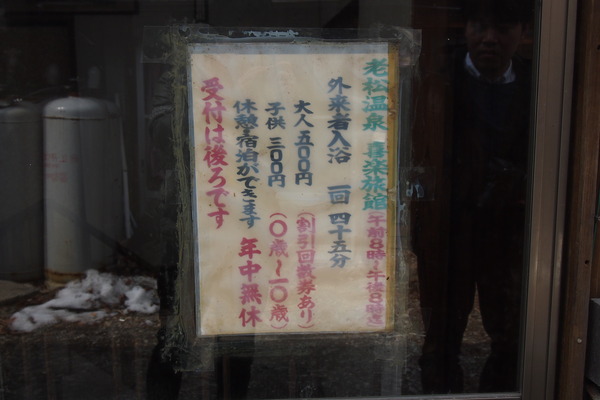 老松温泉 喜楽旅館
午前8時~午後8時迄
外来者入浴 一回 四十五分
大人 五〇〇円 (割引回数券あり)
子供 三〇〇円 (〇歳~一〇歳)
休憩・宿泊ができます
年中無休
受付は後ろです